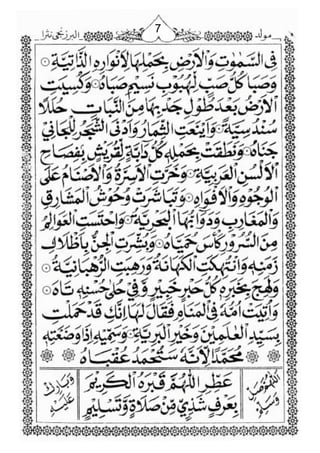 مولد
7
البرزنجي نثرا
فِي السَّمٰوٰتِ وَالْاَرْضِ بِحَمْلِهَا لِاَنْوَارِهِ الذَّاتِيَّةِ
وَصَبَا كُلُّ صَبٍّ لِهُبُوْبِ نَسِيْمِ صَبَاهُ وَكُسِيَتِ
الْاَرْضُ بَعْدَ طُوْلِ جَدْبِهَا مِنَ النَّبَاتِ حُلَلًا
سُنْدُسِيَّةً وَاَيْنَعَتِ الثِّمَارُ وَاَدْنَى الشَّجَرُ لِلْجَانِيْ
جَنَاهُ وَنَطَقَتْ بِحَمْلِهِ كُلُّ دَابَّةٍ لِقُرَيْشٍ بِفِصَاحِ
الْاَلْسُنِ الْعَرَبِيَّةِ وَخَرَّتِ الْاَسِرَّةُ وَالْاَصْنَامُ عَلَى
الْوُجُوْهِ وَالْاَفْوَاهِ وَتَبَاشَرَتْ وُحُوْشُ الْمَشَارِقِ
وَالْمَغَارِبِ وَدَوَابُّهَا الْبَحْرِيَّةُ وَاحْتَسَتِ الْعَوَالِمُ
مِنَ السُّرُوْرِ كَأْسَ حُمَيَّاهُ وَبَشَّرَتِ الْجِنُّ بِاِظْلَالِ
زَمَنِهِ وَانْتُهِكَتِ الْكَهَانَةُ وَرَهِبَتِ الرَّهْبَانِيَّةُ
وَلَهِجَ بِخَبَرِهِ كُلُّ حِبْرٍ خَبِيْرٍ وَفِيْ حُلَا حُسْنِهِ تَاهَ
وَاُتِيَتْ اُمُّهُ فِي الْمَنَامِ فَقِيْلَ لَهَا اِنَّكِ قَدْ حَمَلْتِ
بِسَيِّدِ الْعٰلَمِيْنَ وَخَيْرِ الْبَرِيَّةِ وَسَمِّيْهِ اِذَا وَضَعْتِهِ
مُحَمَّدًا لِاَنَّهُ سَتُحْمَدُ عُقْبَاهُ
عَطِّرِ اللّٰهُمَّ قَبْرَهُ الْكَرِيْمَ
بِعَرْفٍ شَذِيٍّ مِنْ صَلَاةٍ وَتَسْلِيْمٍ
اللّٰهُمَّ صَلِّ
وَسَلِّمْ
وَبَارِكْ
عَلَيْهِ